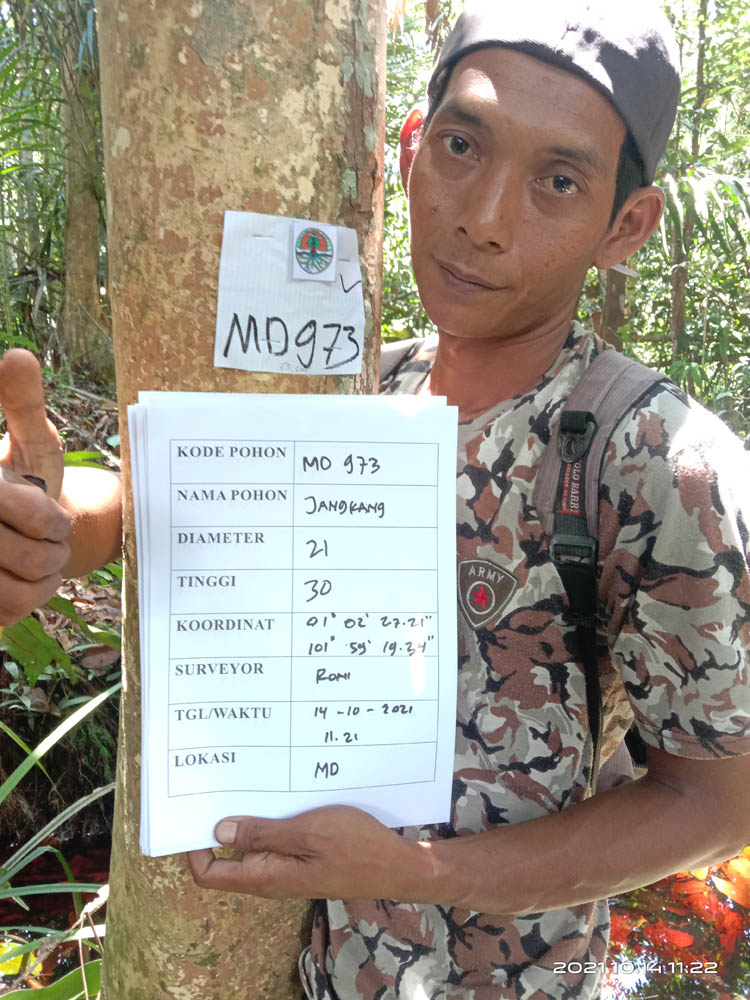 MD973
KODE POHON MD 973
NAMA POHON JANGKANG
DIAMETER 21
TINGGI 30
KOORDINAT 01° 02' 27.21"
101° 59' 19.34"
SURVEYOR RONI
TGL/WAKTU 14-10-2021
11.21
LOKASI MD
POLO BARRY
ARMY
2021.10.14 11:22